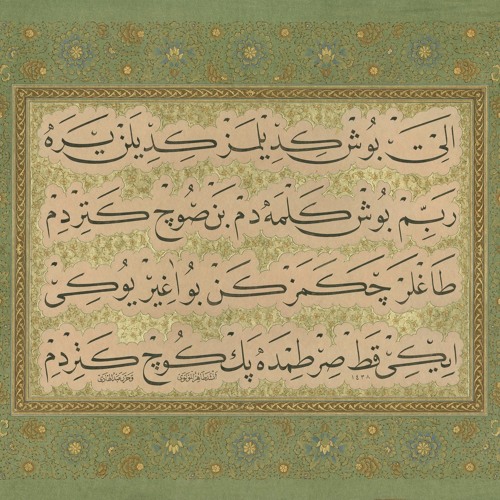 الی بُوشْ كِدِيلمَزْ كِدِيلَنْ يَرَهْ
رَبِّمْ بُوشْ كَلْمَه دمْ بَنْ صُوچْ كَتِرْدِمْ
طَاغْلَرْ چَكَمَزْكَنْ بُو اغِيرْ يُوكِیْ
ايكِیْ قَطْ صِرْطمْدَهْ پَكْ كُوچْ كَتِرْدِمْ
١٤٣٨